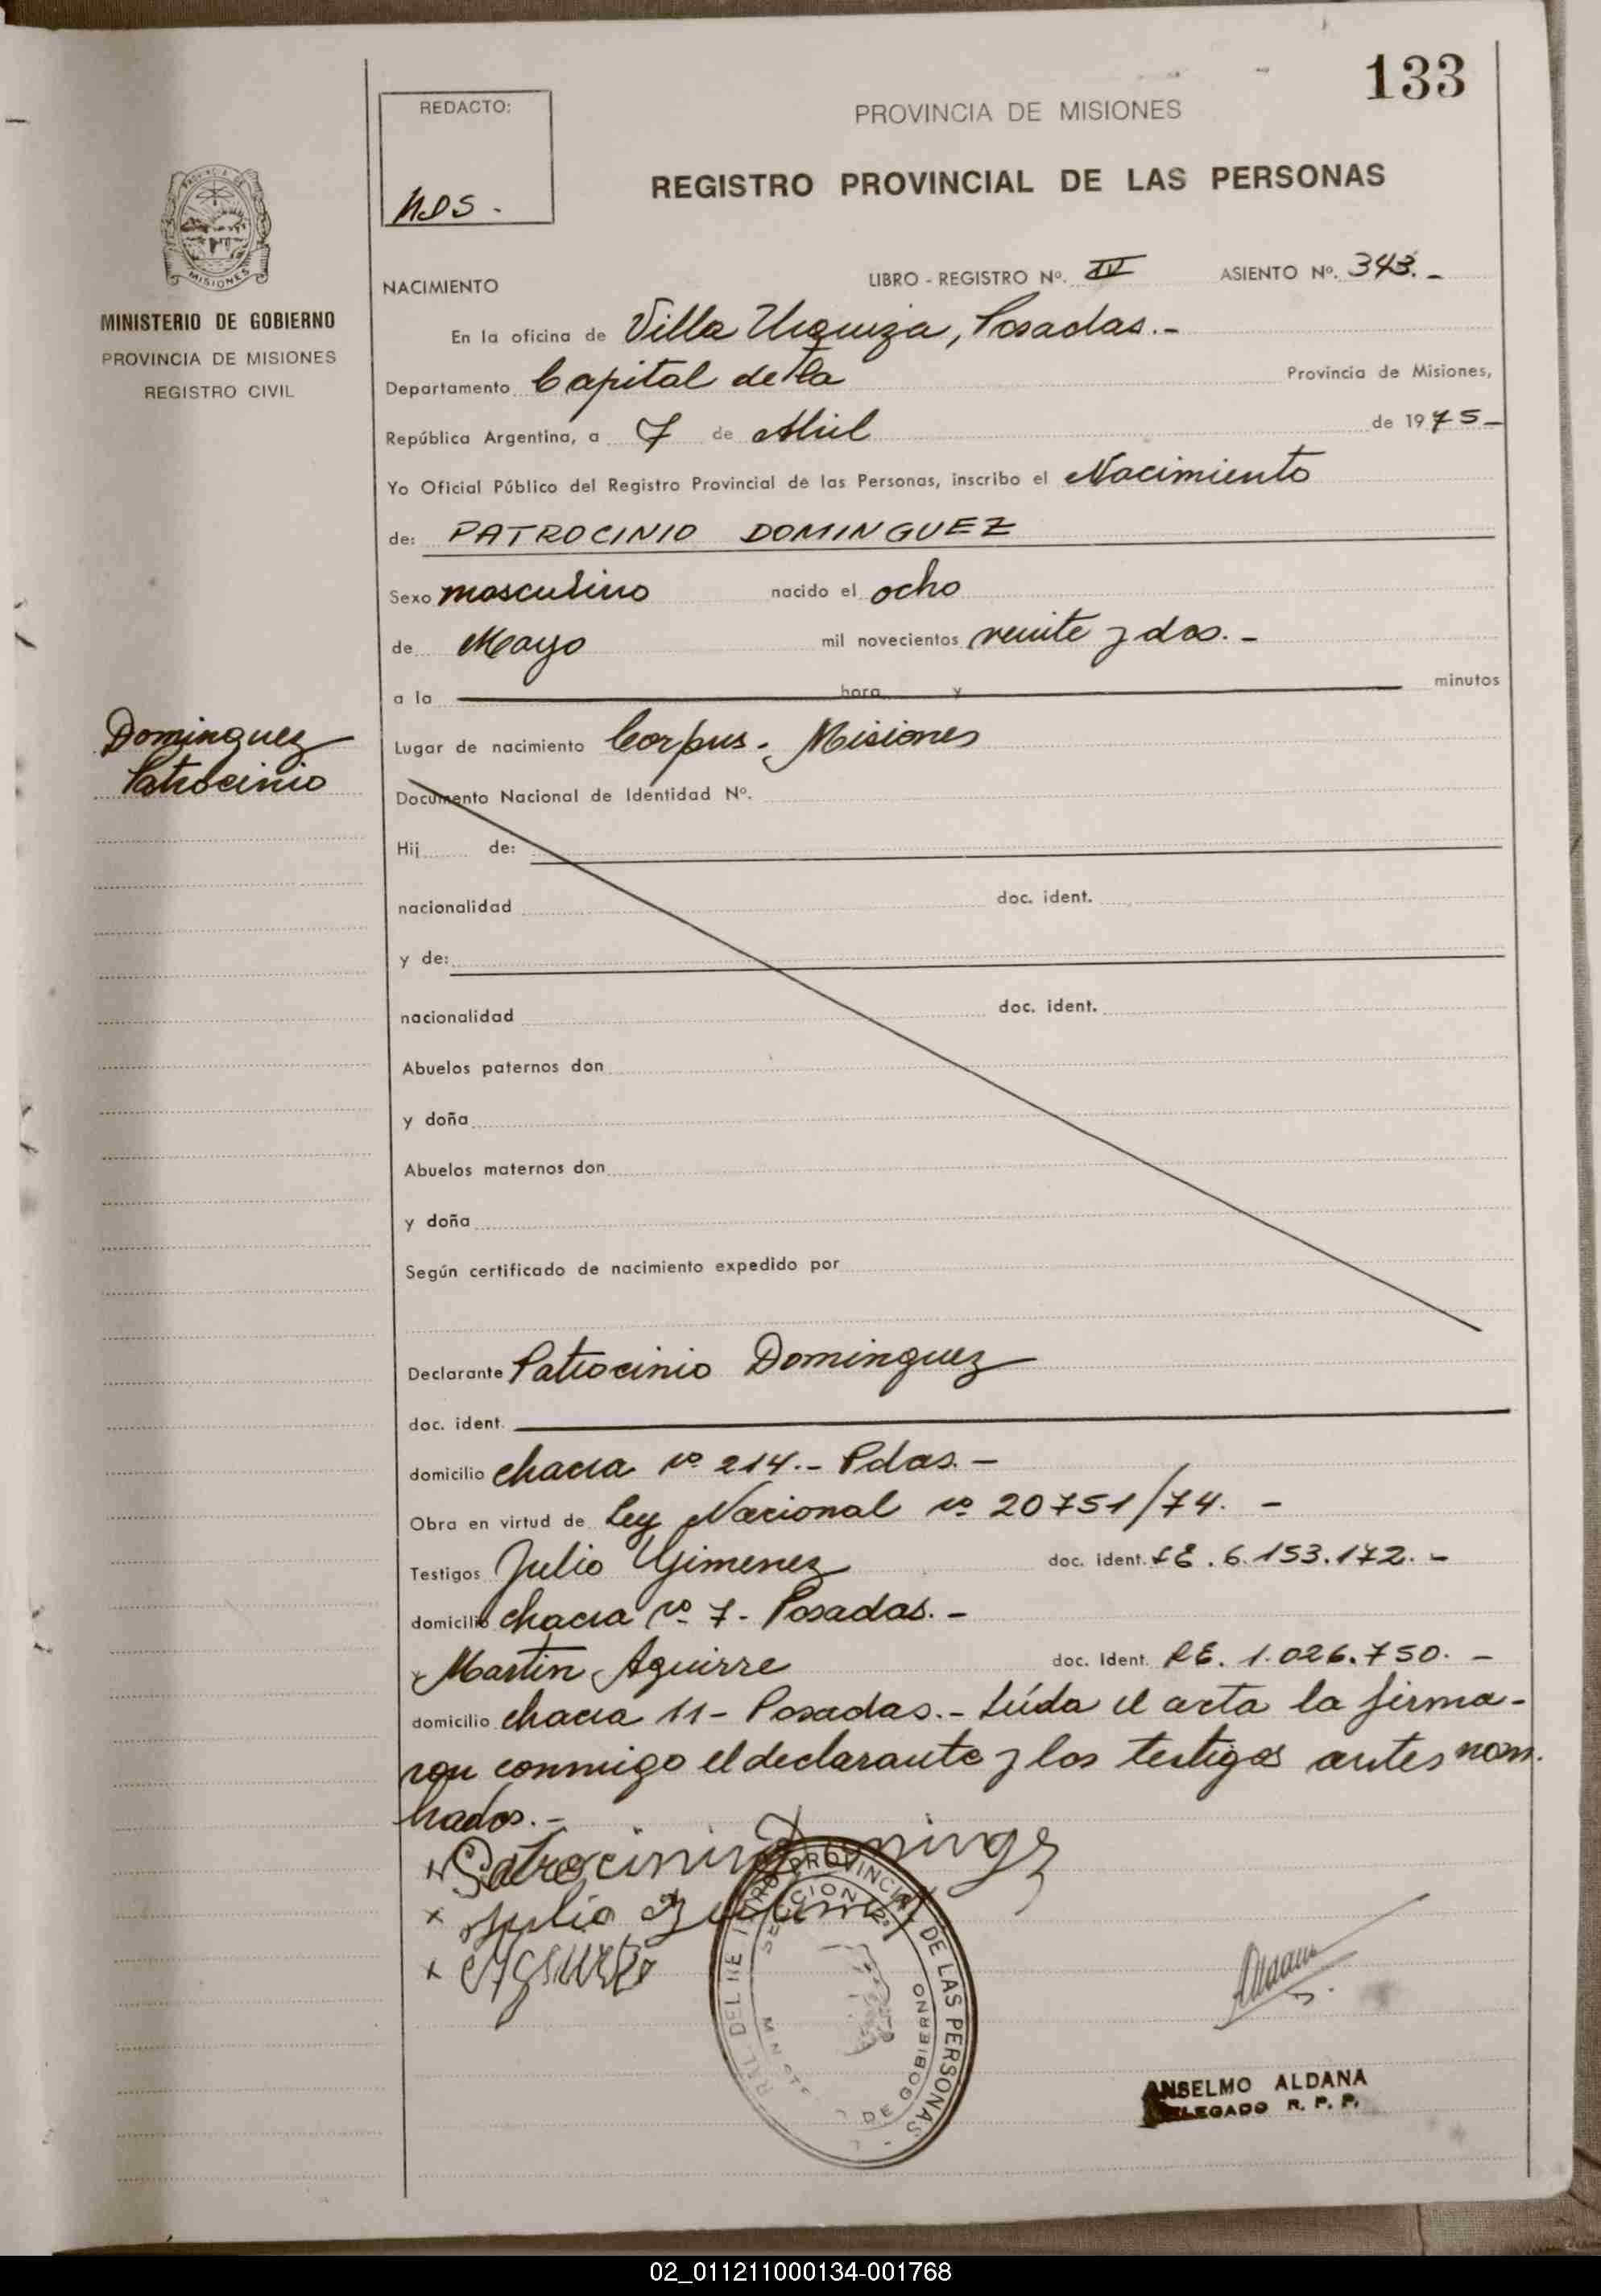 133
REDACTO:
NDS.
PROVINCIA DE MISIONES
REGISTRO PROVINCIAL DE LAS PERSONAS
MISIONES
MINISTERIO DE GOBIERNO
PROVINCIA DE MISIONES
REGISTRO CIVIL
NACIMIENTO LIBRO - REGISTRO Nº. IV ASIENTO Nº. 343.-
En la oficina de Villa Urquiza, Posadas.-
Departamento Capital de la Provincia de Misiones,
República Argentina, a 7 de Abril de 1975-
Yo Oficial Público del Registro Provincial de las Personas, inscribo el Nacimiento
de: PATROCINIO DOMINGUEZ
Sexo masculino nacido el ocho
de Mayo mil novecientos veinte y dos.-
a la hora y minutos
Dominguez
Patrocinio
Lugar de nacimiento Corpus - Misiones
Documento Nacional de Identidad Nº.
Hij de:
nacionalidad doc. ident.
y de:
nacionalidad doc. ident.
Abuelos paternos don
y doña
Abuelos maternos don
y doña
Según certificado de nacimiento expedido por
Declarante Patrocinio Dominguez
doc. ident.
domicilio chacra nº 214.- Pdas.-
Obra en virtud de Ley Nacional nº 20751/74. -
Testigos Julio Gimenez doc. ident. LE. 6.153.172. -
domicilio chacra nº 7 - Posadas. -
y Martin Aguirre doc. Ident. LE. 1.026.750. -
domicilio chacra 11 - Posadas. - Leída el acta la firma-
ron conmigo el declarante y los testigos antes nom-
brados. -
x Patrocinio Domingz
x Julio
x Aguirre
PROVINCIAL DE LAS PERSONAS
DE GOBIERNO
ANSELMO ALDANA
DELEGADO R. P. P.
02_011211000134-001768